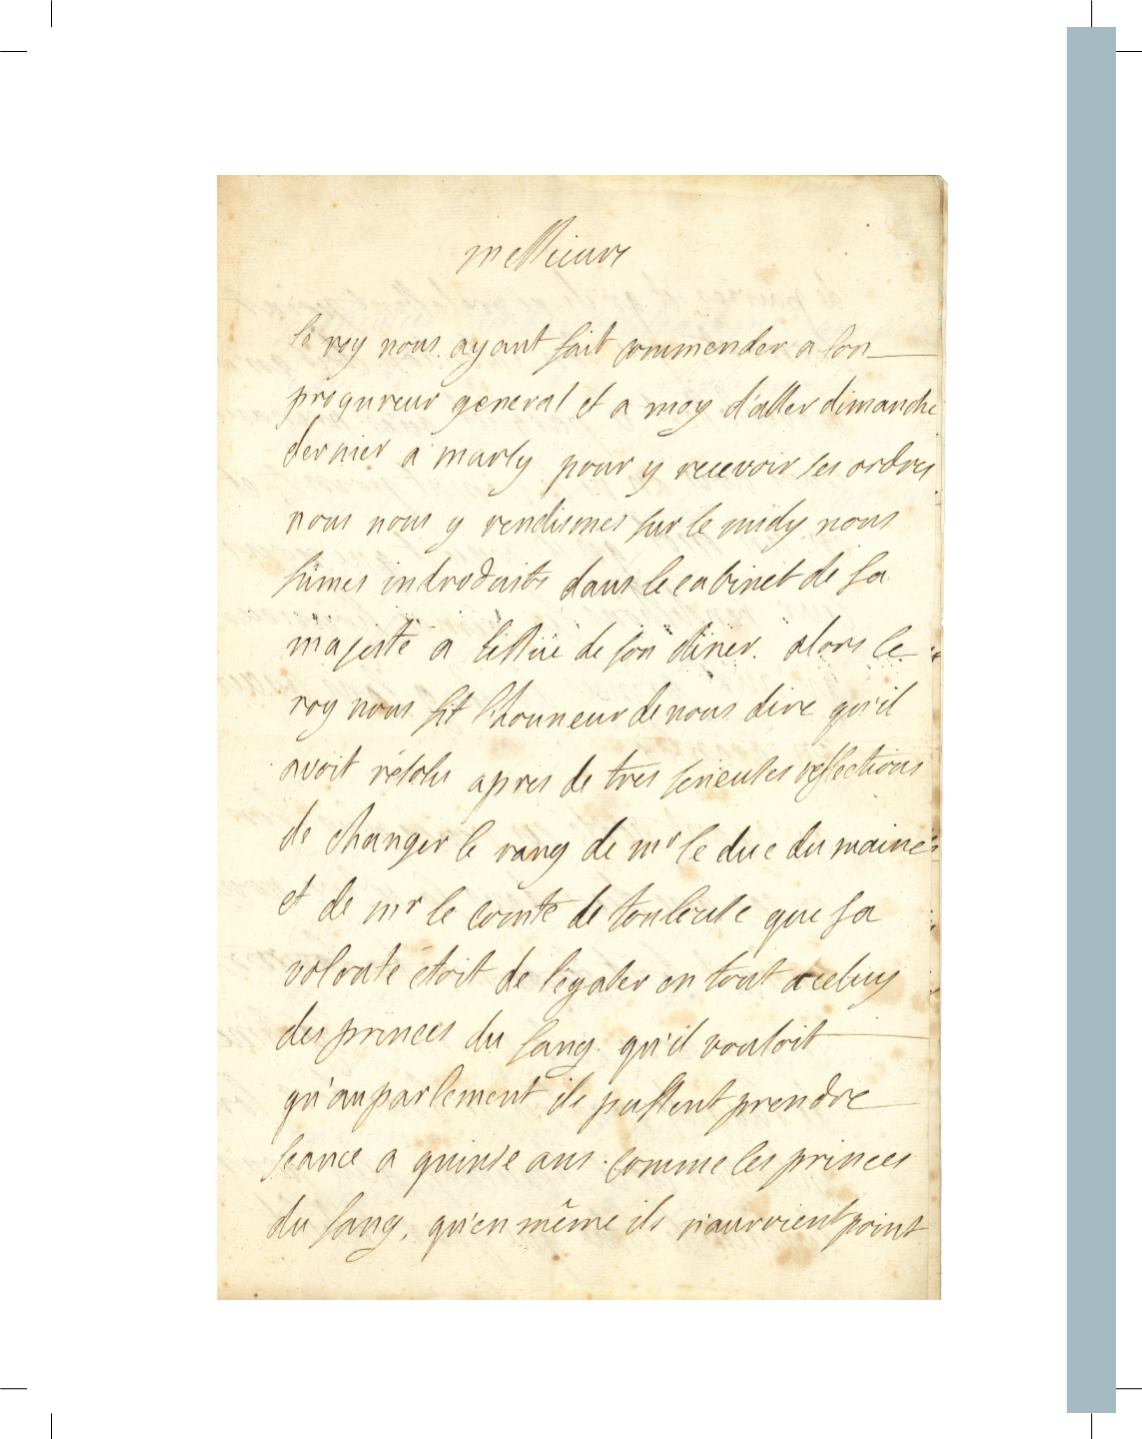 messieurs
le roy nous ayant fait commender a son
proqureur general et a moy d'aller dimanche
dernier a marly pour y recevoir ses ordres
nous nous y rendismes sur le midy nous
fûmes introduits dans le cabinet de sa
majesté a l'issüe de son diner. alors le
roy nous fit l'honneur de nous dire qu'il
avoit résolu apres de tres serieuses reflections
de changer le rang de mr le duc du maine
et de mr le comte de toulouse que sa
volonté étoit de l'égaler en tout a celuy
des princes du sang qu'il vouloit
qu'au parlement ils pussent prendre
seance a quinse ans comme les princes
du sang, qu'en même ils n'auroient point